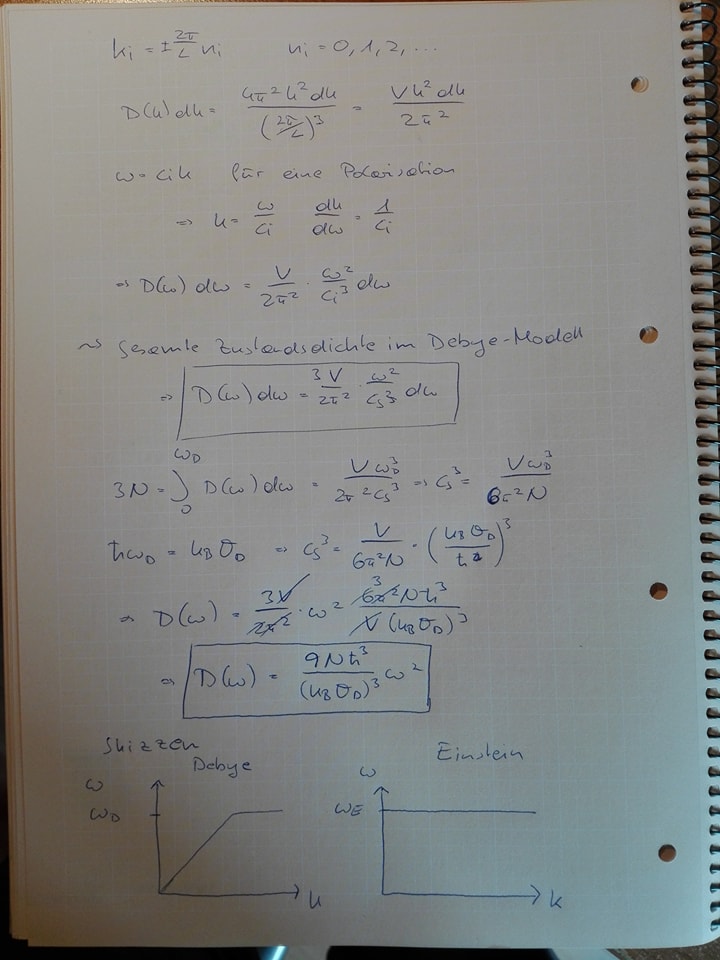 k_i = ± 2π/L n_i    n_i = 0, 1, 2, ...
D(k) dk = 4π² k² dk / (2π/L)³ = V k² dk / 2π²
ω = c_i k für eine Polarisation
⇒ k = ω/c_i    dk/dω = 1/c_i
⇒ D(ω) dω = V/2π² · ω²/c_i³ dω
~> Gesamte Zustandsdichte im Debye-Modell
⇒ D(ω) dω = 3V/2π² · ω²/c_s³ dω
3N = ∫₀^ω_D D(ω) dω = V ω_D³ / 2π² c_s³ ⇒ c_s³ = V ω_D³ / 6π² N
ħω_D = k_B Θ_D ⇒ c_s³ = V/6π²N · (k_B Θ_D / ħ)³
⇒ D(ω) = 3V/2π² · ω² 6π² N ħ³ / V (k_B Θ_D)³ 3
⇒ D(ω) = 9Nħ³ / (k_B Θ_D)³ ω²
Skizzen
Debye
ω
ω_D
k
Einstein
ω
ω_E
k